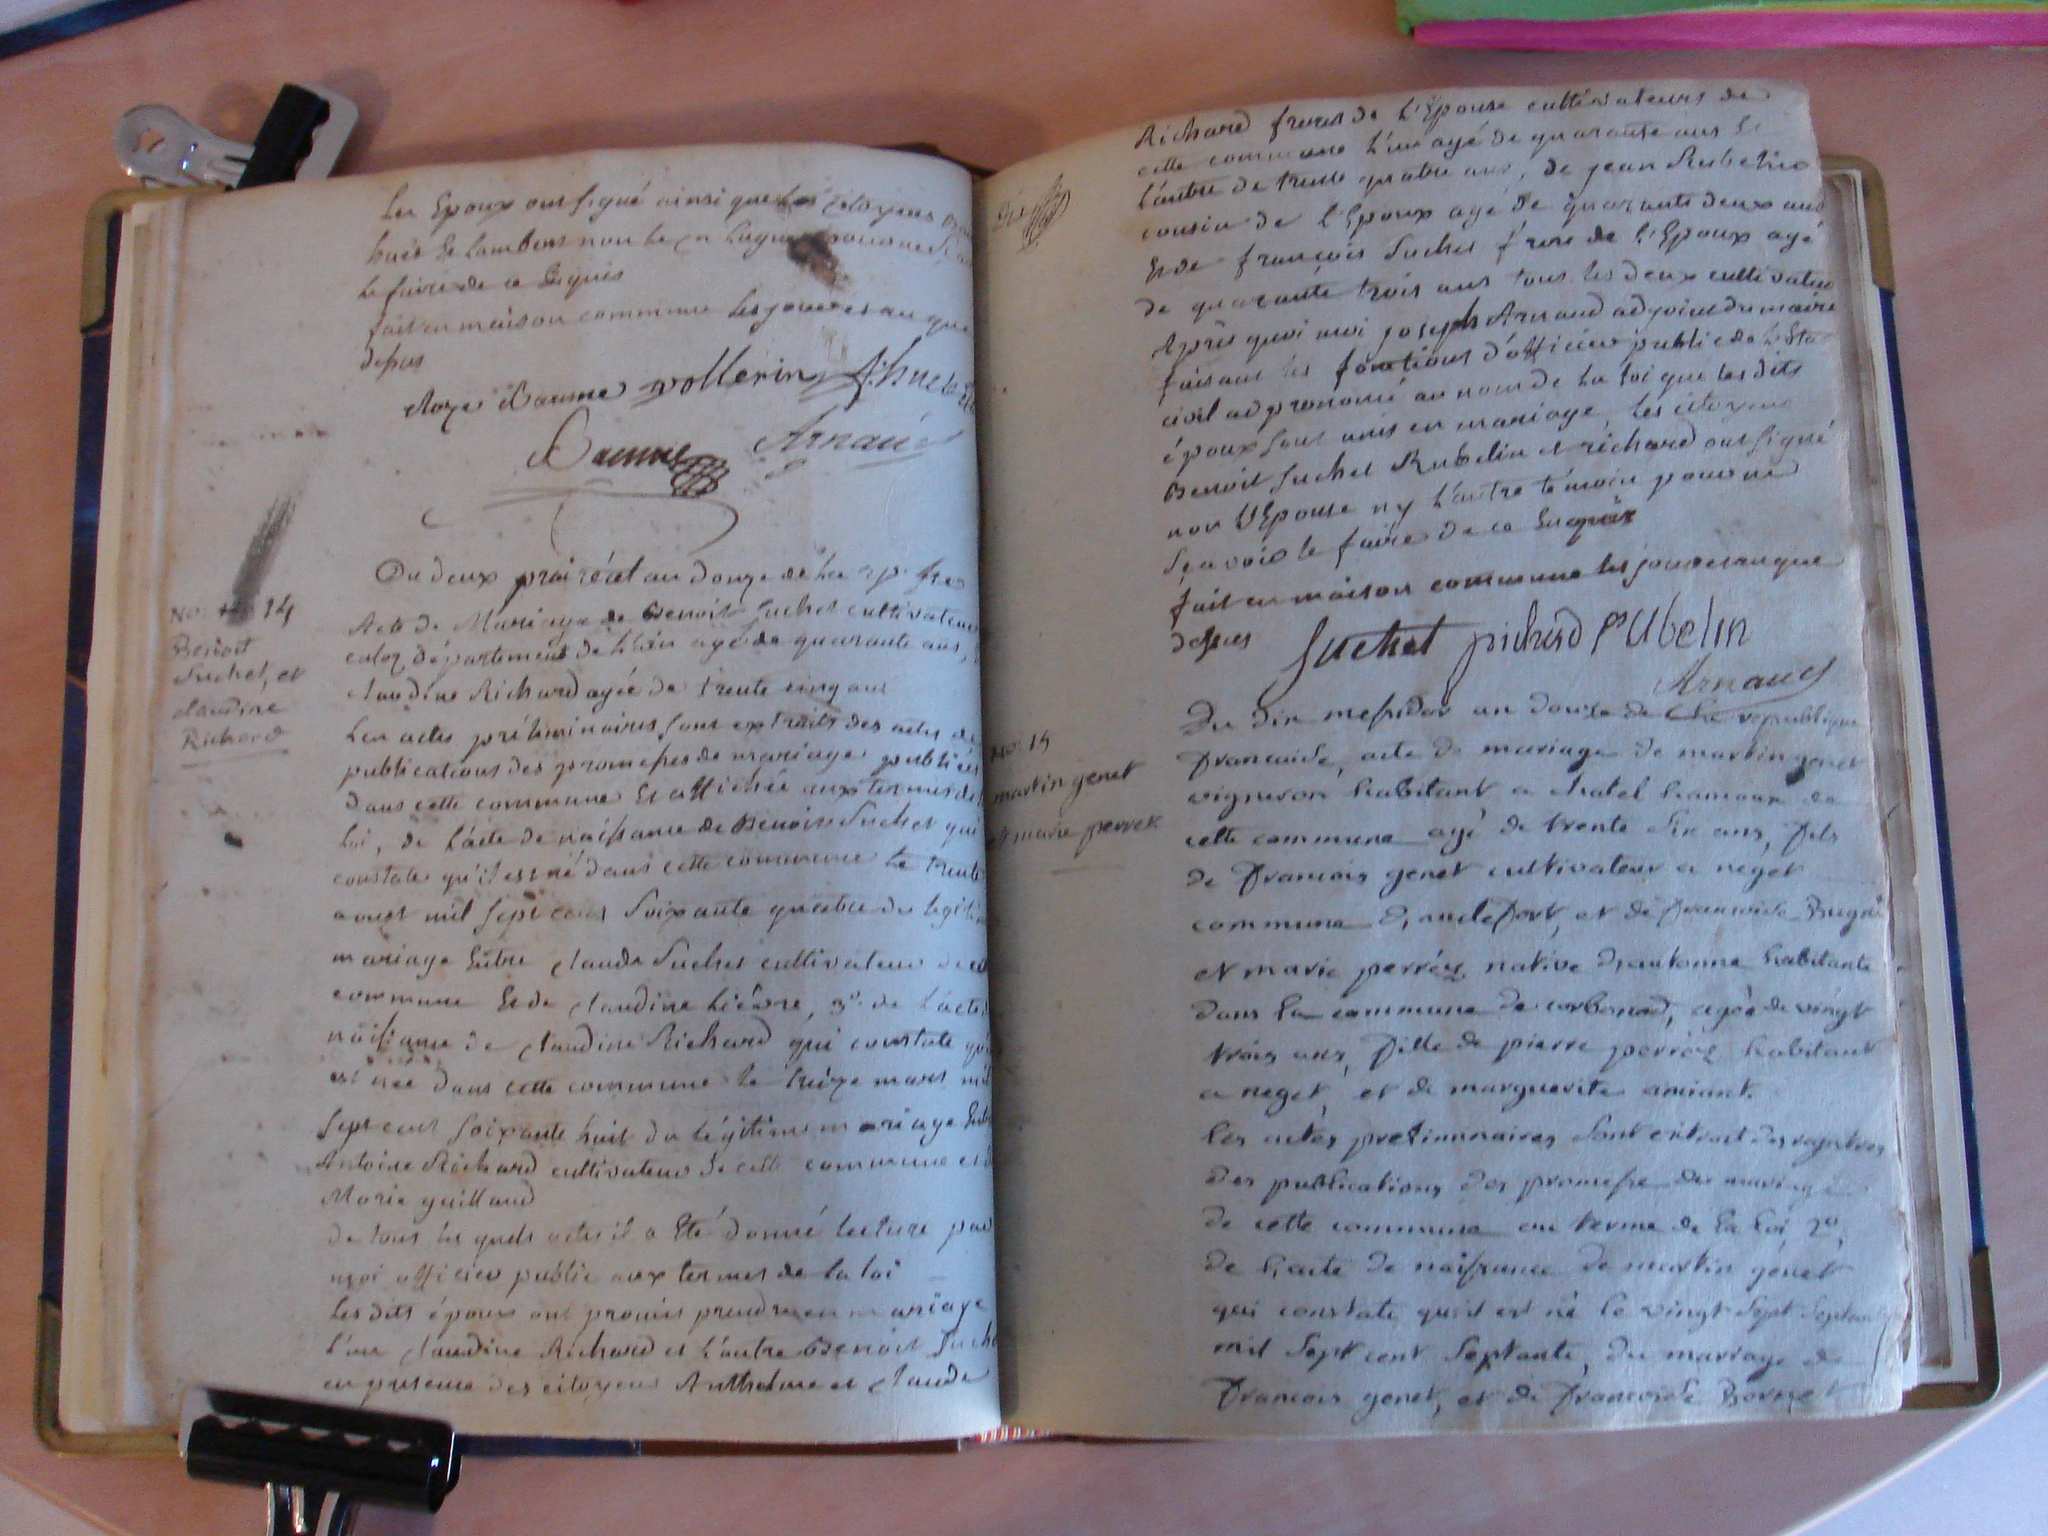 Les Epoux ont signé ainsi que les citoyens
huet et lambert non le
le faire de ce Enquis
fait en maison commune les jours et an que
depus
Baume vollerin
Baume Arnaud
Du deux prairéal an douze de la rp. fse
No. 14
Benoit
Suchet, et
claudine
Richard
Acte de Mariage de Benoit Suchet cultivateur
département de l'ain agé de quarante ans,
claudine Richard agée de trente cinq ans
Les actes préliminaires sont extraits des actes de
publications des promesses de mariage publiées
dans cette commune Et affichée aux termes de
loi, de l'acte de naissance de Benoit Suchet qui
constate qu'il est né dans cette commune le trente
aoust mil sept cent soixante quatre du légitime
mariage Entre claude Suchet cultivateur de
commune Et de claudine liévre, 3°. de l'acte
naissance de claudine Richard qui constate
est née dans cette commune le treize mars mil
sept cent soixante huit du légitime mariage
Antoine Richard cultivateur de cette commune
Marie guillaud
de tous les quels actes il a Eté donné lecture par
moi officier public aux termes de la loi
Les dits époux ont promis prendre en mariage
l'un claudine Richard et l'autre Benoit
en présence des citoyens Anthelme et claude
Richard freres de l'Epouse cultivateurs de
cette commune l'un agé de quarante ans Et
l'autre de trente quatre ans, de jean Rubelin
cousin de l'Epoux agé de quarante deux ans
Et de françois Suchet frere de l'Epoux agé
de quarante trois ans tous les deux cultivateur
Apres quoi moi joseph Arnaud adjoint du maire
faisant les fonctions d'officier public de l'Etat
civil ai prononcé au nom de la loi que les dits
époux sont unis en mariage, les citoyens
Benoit Suchet Rubelin et richard ont signé
non l'Epouse ny l'autre témoin pour ne
sçavoir le faire de ce Enquis
fait en maison commune les jours et an que
dessus Suchet richard rubelin
Arnaud
No. 15
martin genet
et marie perret
Du dix messidor an douze de la republique
francaise, acte de mariage de martin genet
vigneron habitant a chatel hameau de
cette commune agé de trente six ans, fils
de francois genet cultivateur a neget
commune et de francoise
et marie native habitante
dans la commune de corbonod, agée de vingt
trois ans, fille de pierre habitant
a neget, et de marguerite
les actes preliminaires sont extrait des registres
des publications des promesse de mariage
de cette commune au terme de la loi 2°,
de l'acte de naissance de martin genet
qui constate qu'il est né le vingt sept septembre
mil sept cent septante, du mariage de
francois genet, et de francoise